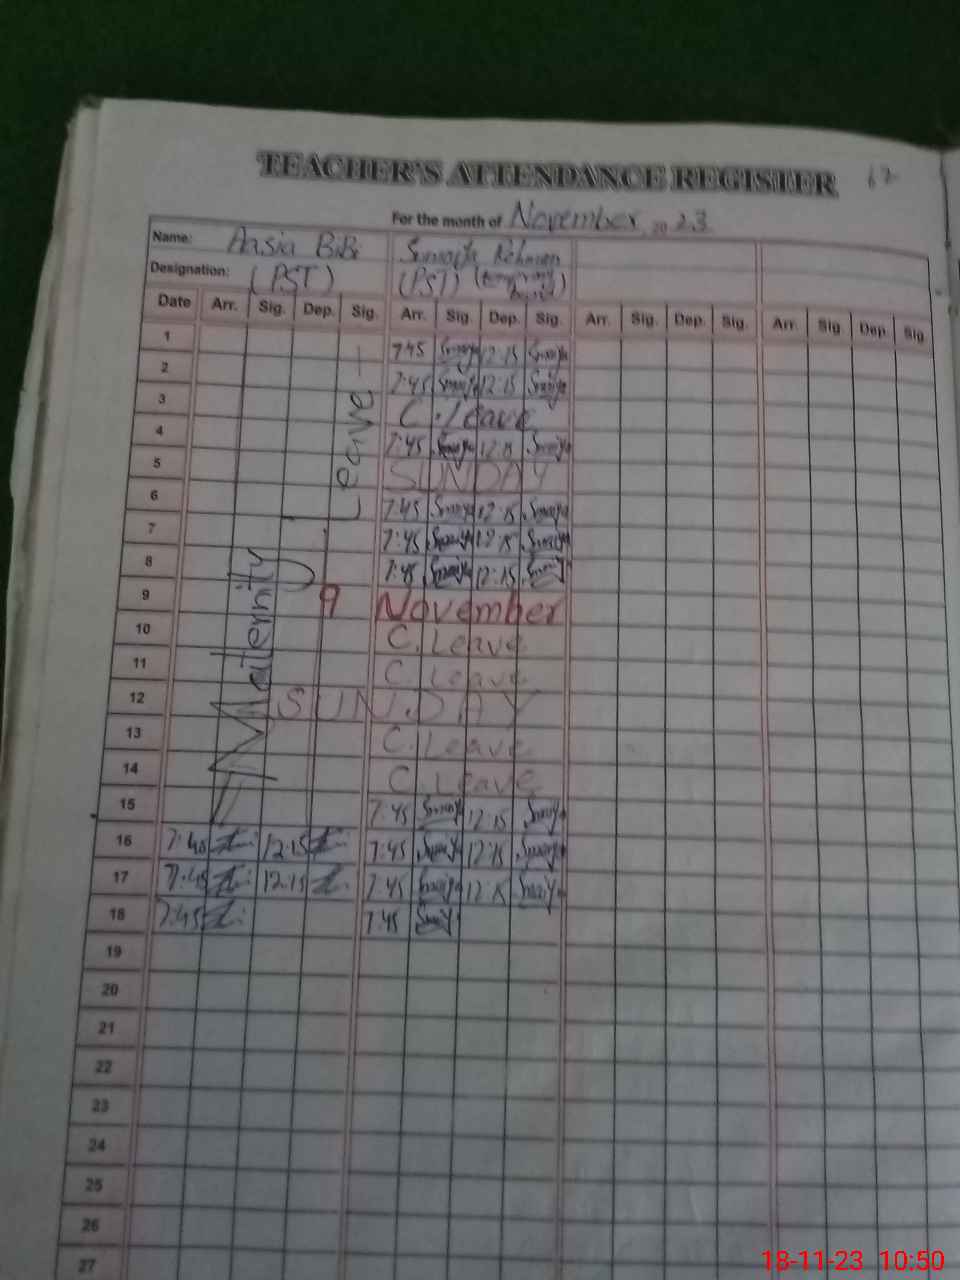 TEACHER'S ATTENDANCE REGISTER
For the month of November 2023
Name: Aasia BiBi Rehman
Designation: (PST) (PST)
Date Arr. Sig. Dep. Sig. Arr. Sig. Dep. Sig. Arr. Sig. Dep. Sig. Arr. Sig. Dep. Sig.
Maternity Leave
1 7:45 12:15
2 7:45 12:15
3 C. Leave
4 7:45 12:15
5 SUNDAY
6 7:45 12:15
7 7:45 12:15
8 7:45 12:15
9 9 November
10 C. Leave
11 C. Leave
12 SUNDAY
13 C. Leave
14 C. Leave
15 7:45 12:15
16 7:45 12:15 7:45 12:15
17 7:45 12:15 7:45 12:15
18 7:45 7:45
19
20
21
22
23
24
25
26
27
18-11-23 10:50